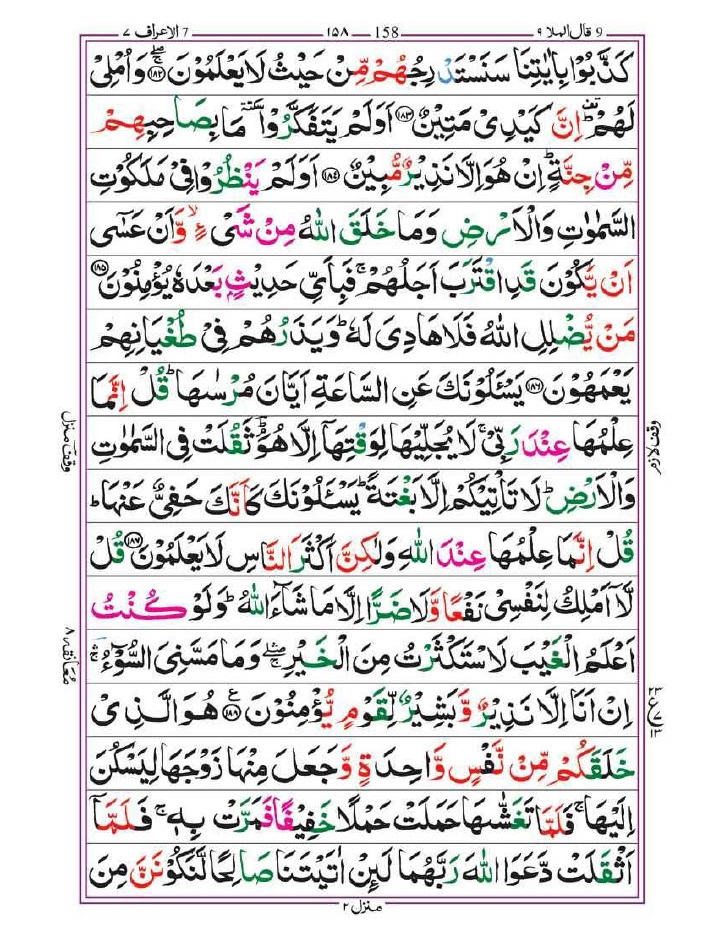 9 قال الملا ٩ 158 ١٥٨ 7 الاعراف ٧
كَذَّبُوْا بِاٰيٰتِنَا سَنَسْتَدْرِجُهُمْ مِّنْ حَيْثُ لَا يَعْلَمُوْنَ ۚۖ‏﴿۱۸۲﴾ وَاُمْلِىْ
لَهُمْ ؕ اِنَّ كَيْدِىْ مَتِيْنٌ‏ ﴿۱۸۳﴾ اَوَلَمْ يَتَفَكَّرُوْا ٚ مَا بِصَاحِبِهِمْ
مِّنْ جِنَّةٍ ؕ اِنْ هُوَ اِلَّا نَذِيْرٌ مُّبِيْنٌ‏ ﴿۱۸۴﴾ اَوَلَمْ يَنْظُرُوْا فِىْ مَلَكُوْتِ
السَّمٰوٰتِ وَالْاَرْضِ وَمَا خَلَقَ اللّٰهُ مِنْ شَىْءٍ ۙ وَّاَنْ عَسٰٓى
اَنْ يَّكُوْنَ قَدِ اقْتَرَبَ اَجَلُهُمْ ۚ فَبِاَىِّ حَدِيْثٍۢ بَعْدَهٗ يُؤْمِنُوْنَ‏ ﴿۱۸۵﴾
مَنْ يُّضْلِلِ اللّٰهُ فَلَا هَادِىَ لَهٗ ؕ وَ يَذَرُهُمْ فِىْ طُغْيَانِهِمْ
يَعْمَهُوْنَ‏ ﴿۱۸۶﴾ يَسْئَلُوْنَكَ عَنِ السَّاعَةِ اَيَّانَ مُرْسٰٮهَا ؕ قُلْ اِنَّمَا
عِلْمُهَا عِنْدَ رَبِّىْ ۚ لَا يُجَلِّيْهَا لِوَقْتِهَاۤ اِلَّا هُوَ ؔۘ ثَقُلَتْ فِى السَّمٰوٰتِ
وَالْاَرْضِ ؕ لَا تَاْتِيْكُمْ اِلَّا بَغْتَةً ؕ يَسْئَلُوْنَكَ كَاَنَّكَ حَفِىٌّ عَنْهَا ؕ
قُلْ اِنَّمَا عِلْمُهَا عِنْدَ اللّٰهِ وَلٰكِنَّ اَكْثَرَ النَّاسِ لَا يَعْلَمُوْنَ‏ ﴿۱۸۷﴾ قُلْ
لَّاۤ اَمْلِكُ لِنَفْسِىْ نَفْعًا وَّلَا ضَرًّا اِلَّا مَا شَآءَ اللّٰهُ ؕ وَلَوْ كُنْتُ
اَعْلَمُ الْغَيْبَ لَاسْتَكْثَرْتُ مِنَ الْخَيْرِ ۖۛ وَمَا مَسَّنِىَ السُّوْٓءُ ۛۚ
اِنْ اَنَا اِلَّا نَذِيْرٌ وَّبَشِيْرٌ لِّقَوْمٍ يُّؤْمِنُوْنَ ‏﴿۱۸۸﴾ هُوَ الَّذِىْ
خَلَقَكُمْ مِّنْ نَّفْسٍ وَّاحِدَةٍ وَّجَعَلَ مِنْهَا زَوْجَهَا لِيَسْكُنَ
اِلَيْهَا ۚ فَلَمَّا تَغَشّٰٮهَا حَمَلَتْ حَمْلًا خَفِيْفًا فَمَرَّتْ بِهٖ ۚ فَلَمَّاۤ
اَثْقَلَتْ دَّعَوَا اللّٰهَ رَبَّهُمَا لَئِنْ اٰتَيْتَنَا صَالِحًا لَّنَكُوْنَنَّ مِنَ
منزل ٢
وقف لازم
وقف منزل
معانقه ٨